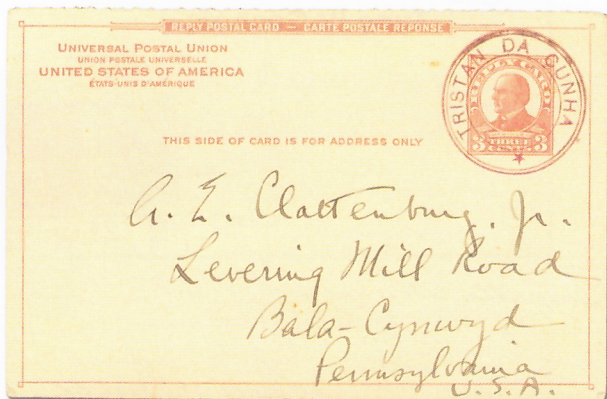 REPLY POSTAL CARD — CARTE POSTALE RÉPONSE
UNIVERSAL POSTAL UNION
UNION POSTALE UNIVERSELLE
UNITED STATES OF AMERICA
ÉTATS-UNIS D'AMÉRIQUE
TRISTAN DA CUNHA
REPLY CARD
3 THREE CENTS 3
THIS SIDE OF CARD IS FOR ADDRESS ONLY
A. E. Clattenburg, Jr.
Levering Mill Road
Bala-Cynwyd
Pennsylvania
U.S.A.